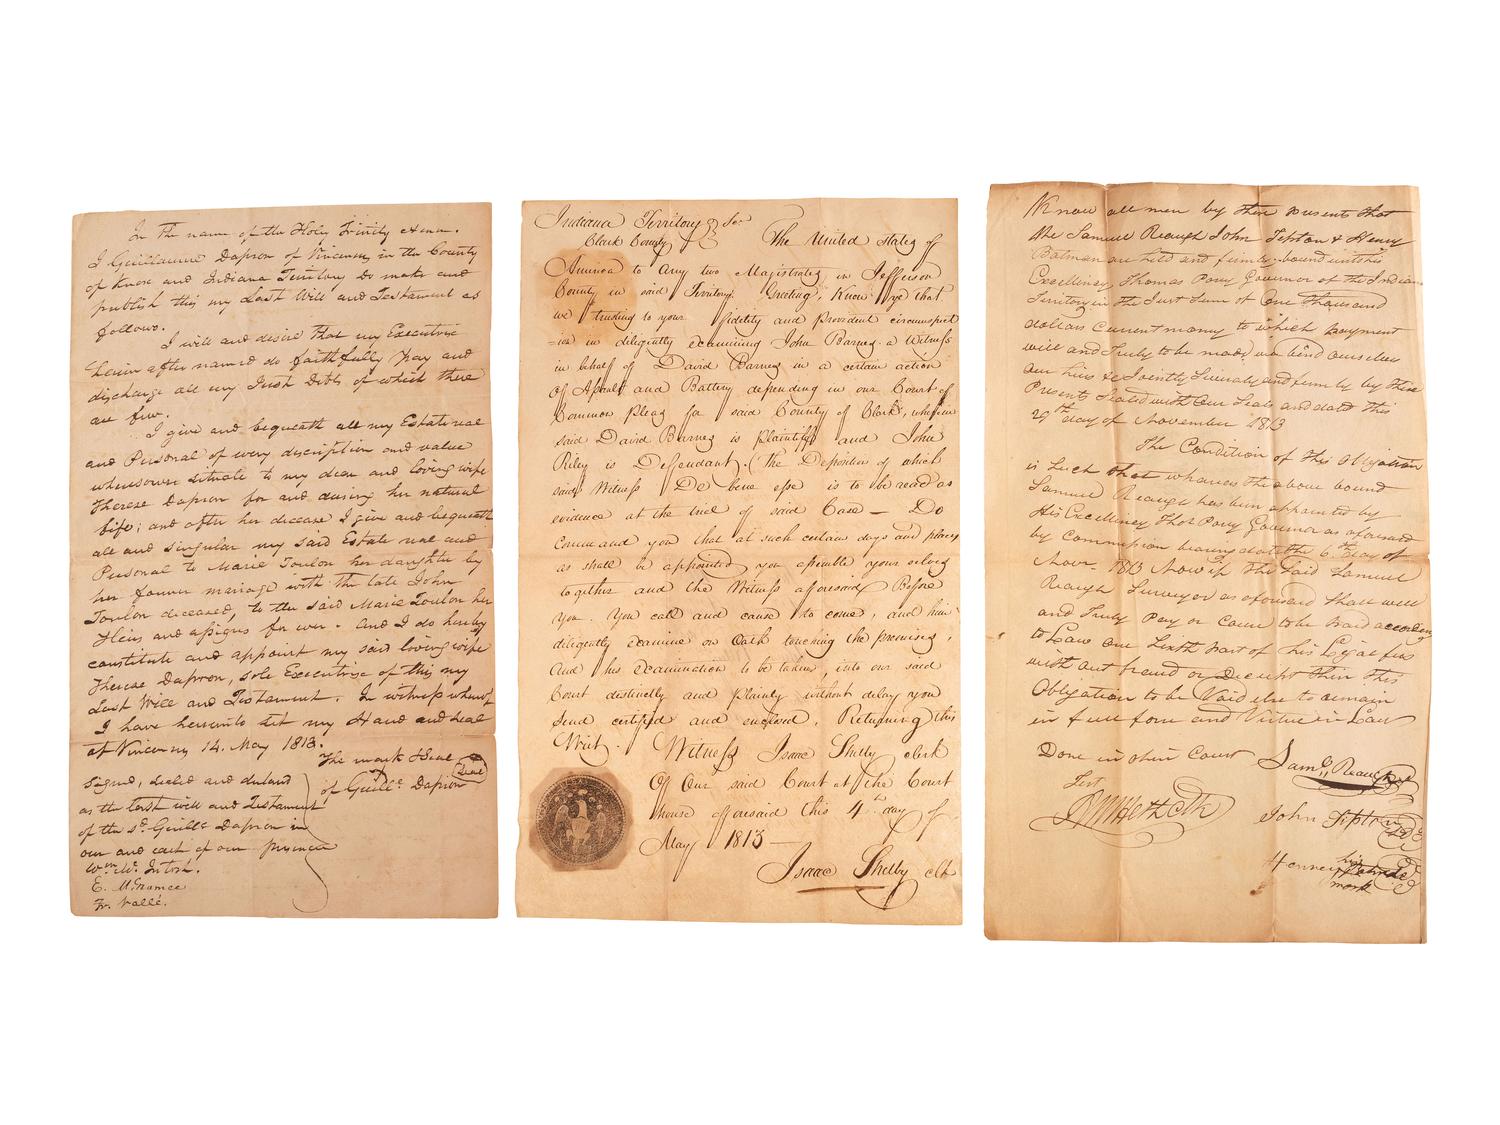 In the name of the Holy Trinity Amen.
I Guillaume Dapron of Vincennes in the County
of Knox and Indiana Territory Do make and
publish this my Last Will and Testament as
follows.
I will and desire that my Executrix
herein after named do faithfully Pay and
discharge all my Just Debts of which there
are few.
I give and bequeath all my Estate real
and Personal of every discription and value
wheresoever situate to my dear and loving wife
Therese Dapron for and during her natural
life; and after her decease I give and bequeath
all and singular my said Estate real and
Personal to Marie Toulon her daughter by
her former mariage with the late John
Toulon deceased, to the said Marie Toulon her
Heirs and assigns for ever. And I do hereby
constitute and appoint my said loving wife
Therese Dapron, sole Executrix of this my
Last Will and Testament. In witness whereof
I have hereunto set my Hand and seal
at Vincennes 14. May 1813.
The mark & Seal
of Guille. Dapron
Seal
Signed, sealed and delivered
as the last will and Testament
of the sd. Guille Dapron in
our and each of our presence
Wm. Mc. Intosh.
E. McNamee
Fr. Vallé.
Indiana Territory Sc.
Clark County
The United States of
America to Any two Magistrates in Jefferson
County in said Territory. Greeting, Know ye that
we trusting to your fidelity and Provident circumspect
=ion in diligently examining John Barnes a Witness
in behalf of David Barnes in a certain action
Of Assault and Battery depending in our Court of
Common Pleas for said County of Clark, wherein
said David Barnes is Plaintiff and John
Riley is Defendant. (The Deposition of which
said Witness De bene esse is to be read as
evidence at the trial of said Case — Do
Command you that at such certain days and places
as shall be appointed you assemble your selves
together and the Witness afforesaid Before
you. You call and cause to come, and him
diligently examine on Oath touching the premises,
And his examination to be taken, into our said
Court distinctly and plainly without delay you
send certified and enclosed, Returning this
Writ. Witness Isaac Shelby clerk
Of Our said Court at the Court
house afforesaid this 4th day of
May 1813 —
Isaac Shelby clk
Know all men by these presents that
We Samuel Reaugh John Tipton & Henry
Batman are held and firmly bound unto his
Excellency Thomas Posey Governor of the Indian
Territory in the Just Sum of One thousand
dollars Current money to which payment
will and Truly to be made we bind ourselves
our heirs &c Jointly Severaly and firmly by these
Presents Sealed with our Seals and dated this
29th day of November 1813
The Condition of this Obligation
is Such that whereas the above bound
Samuel Reaugh has been appointed by
His Excellency Thos Posey Governor as aforesaid
by Commission bearing date the 6th day of
Novr. 1813 Now if the Said Samuel
Reaugh Surveyor as aforesaid Shall well
and Truly Pay or Cause to be Paid according
to Law one Sixth part of his Legal fees
without fraud or Deceipt then this
Obligation to be Void else to remain
in full force and Virtue in Law
Done in open Court
Saml. Reaugh
John Tipton
Henrey his
mark